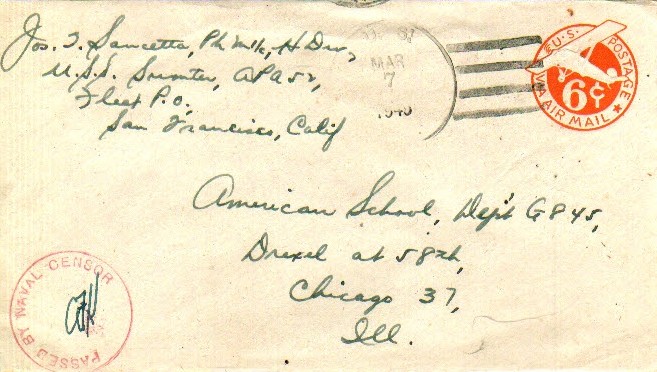 Jos. T. Saucetta, Ph M1/c, H Div,
U.S.S. Sumter, APA 52,
Fleet P.O.
San Francisco, Calif
MAR
7
U.S. POSTAGE
6¢
VIA AIR MAIL
American School, Dep't G845,
Drexel at 58th,
Chicago 37,
Ill.
PASSED BY NAVAL CENSOR